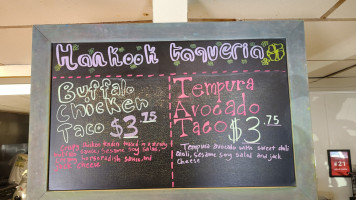 Hankook taqueria
Buffalo
Chicken
Taco $3.75
Crispy chicken
sauce, sesame soy salad,
radish sauce, and
cheese
Tempura
Avocado
Taco $3.75
Tempura avocado with sweet chili
aioli, sesame soy salad and jack
cheese